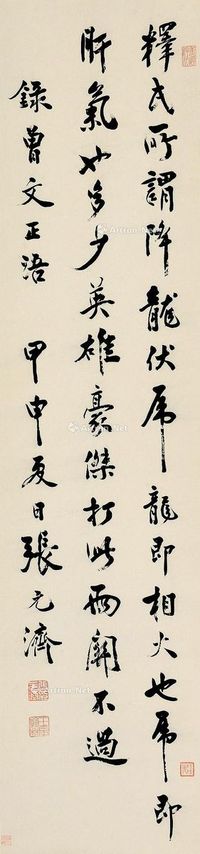 釋氏所謂降龍伏虎龍即相火也虎即
肝氣也多少英雄豪傑打此兩關不過
錄曾文正語 甲申夏日張元濟